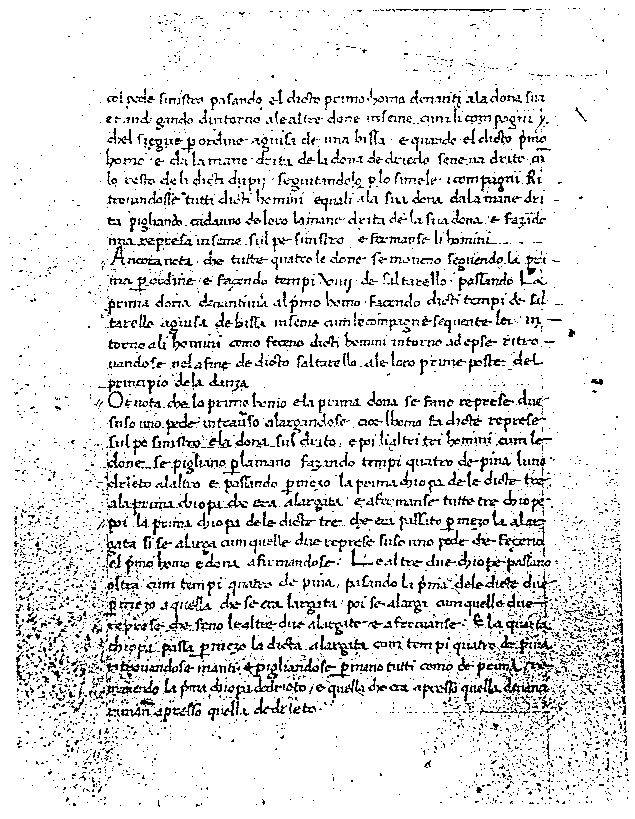 col pede sinistro pasando el dicto primo homo denanti ala dona sua
et andagando dintorno ale altre done inseme cum li compagni
chel siegue p ordine aguisa de una bissa e quando el dicto pmo
homo e da la mane drita de la dona de driedo sene va drito
lo resto deli dicti dapii seguitandolo p lo simele i compagni Ri
trovandosse tutti dicti homini equali ala sua dona dala mane dri
ta pigliando cadauno de loro la mane drita de la sua dona e fazando
una represa inseme sul pe sinistro e fermanse li homini
Ancora nota che tutte quatro le done se moveno seguendo la pri
ma p ordine e facendo tempi de saltarello passando La
prima dona denanti al pmo homo facendo dicti tempi de sal
tarello aguisa de bissa inseme cum le compagne sequente lei in
torno ali homini como feceno dicti homini intorno ad epse ritro
vandose nela fine de dicto saltarello ale loro prime poste del
principio dela danza
Or nota che lo primo homo e la prima dona se fano represe due
suso uno pede alargandose cioe lhomo fa dicte represe
sul pe sinistro e la dona sul drito e poi li altri tri homini cum le
done se pigliano p la mano fazando tempi quatro de piva luno
drieto al altro e passando p mezo la prima chiopa dele dicte tre
ala prima chiopa che era alargata e afermanse tutte tre chiope
poi la prima chiopa dele dicte tre che era passata p mezo la alar
gata si se alarga cum quelle due represe suso uno pede che feceno
el pmo homo e dona afirmandose Le altre due chiope passano
oltra cum tempi quatro de piva pasando la pma dele dicte due
p mezo a quella che se era largata poi se alarga cum quelle due
represe che feno le altre due alargate e afermanse E la quarta
chiopa passa p mezo la dicta alargata cum tempi quatro de piva
ritrovandose inanti e pigliandose p mano tutti como de prima
manendo la pma chiopa dedrieto e quella che era apresso quella denanci
riman apresso quella dedrieto